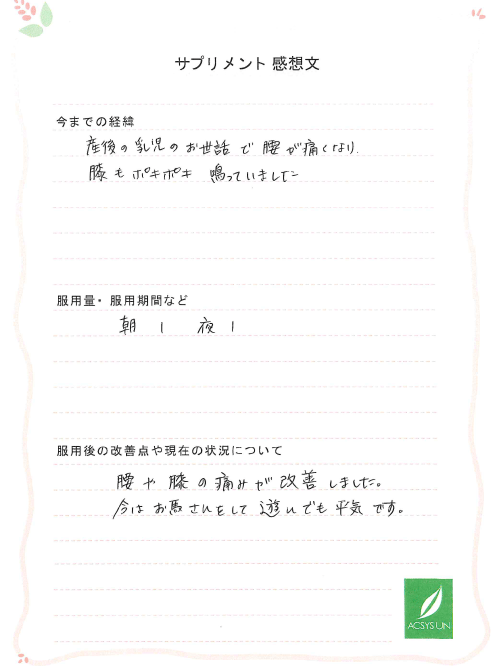 サプリメント 感想文
今までの経緯
産後の乳児のお世話で腰が痛くなり.
膝もポキポキ 鳴っていました
服用量・服用期間など
朝 1 夜 1
服用後の改善点や現在の状況について
腰や膝の痛みが改善しました。
今はお馬さんをして遊んでも平気です。
ACSYSUN